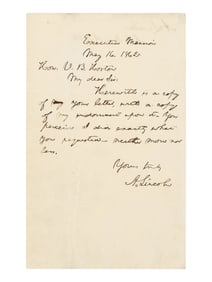 Executive Mansion
May 16, 1862
Hon. V. B. Horton
My dear Sir.
Herewith is a copy
of my your letter, with a copy
of my indorsement upon it. You
perceive I did exactly what
you requested neither more nor
less.
Yours truly
A. Lincoln